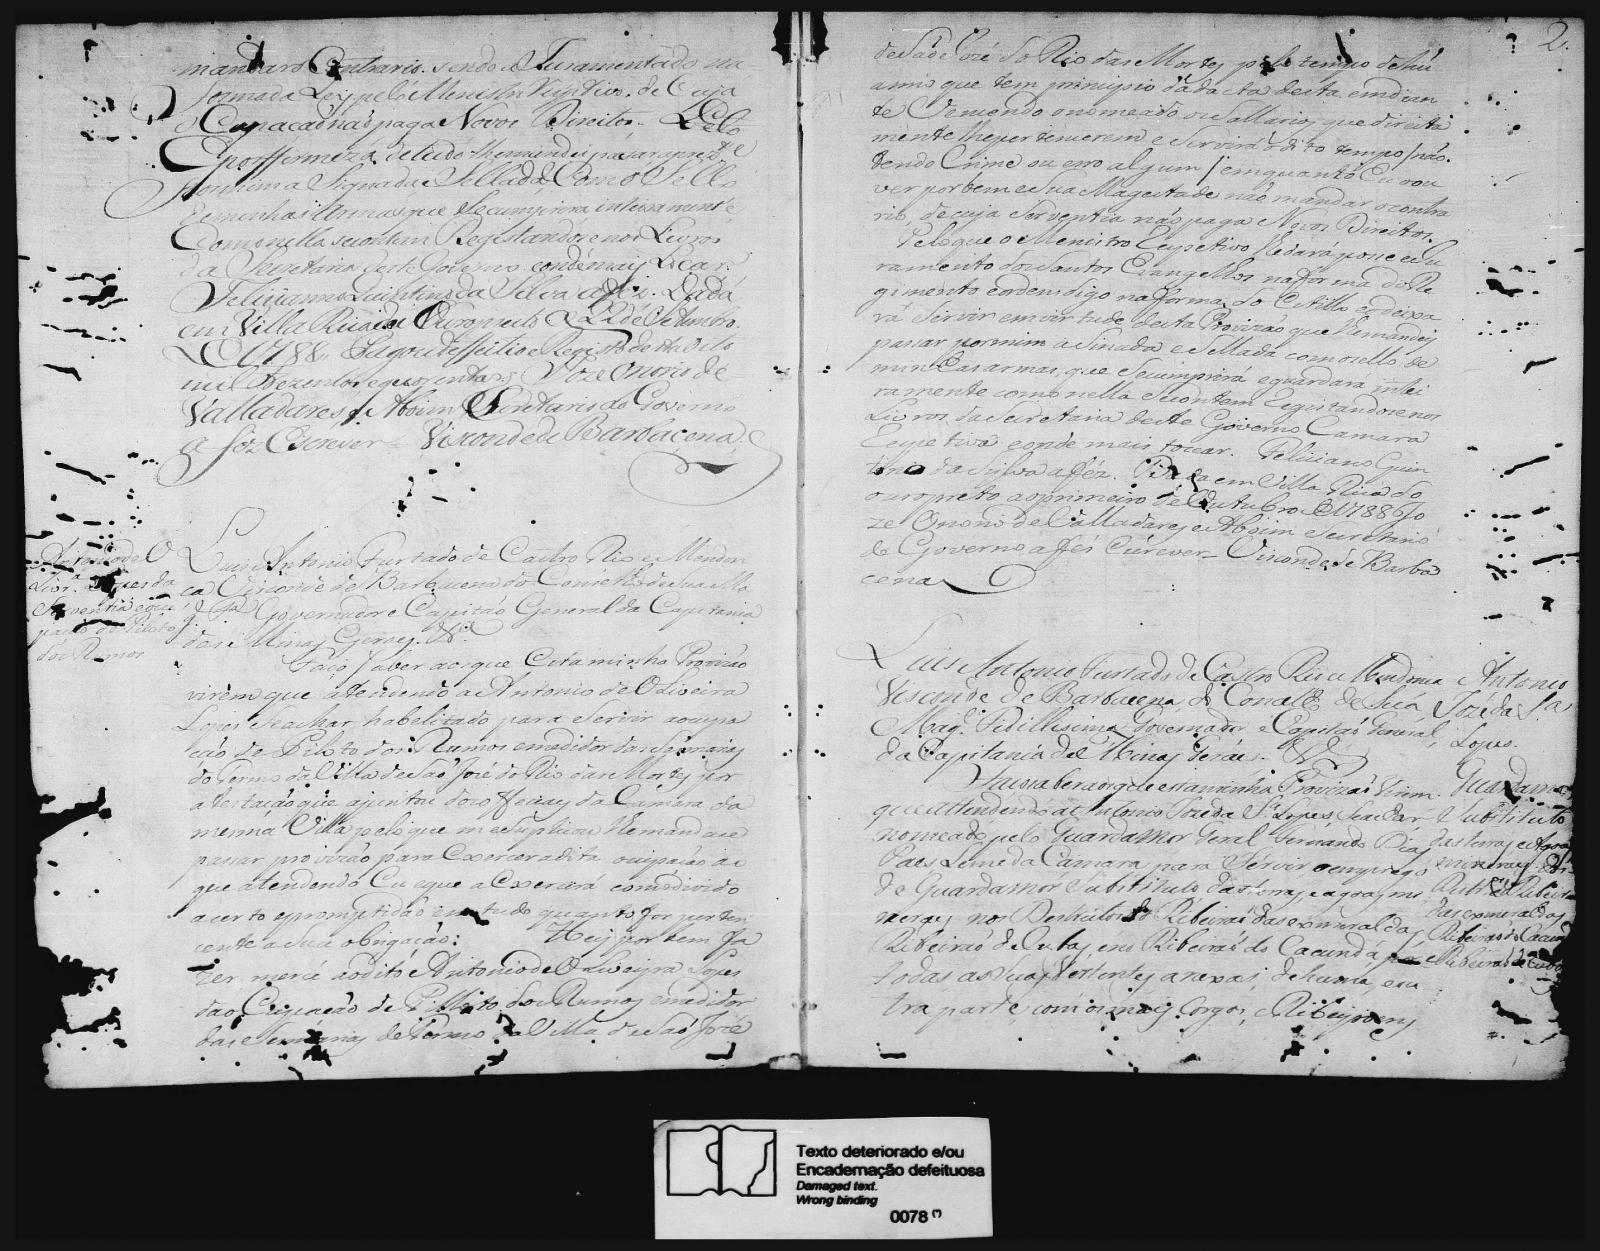 mandar o Contrario. sendo o Juramentado na
forma da Ley pelo Menistro Respectivo, de Cuja
Occupaçaõ naõ paga Novos Direitos. Pelo
E por firmeza de tudo lhe mandei pasar a prez.te
por mim aSignada e Sellada Com o Sello
de minhas Armas que Se cumprirá inteiramente
Como nella se contem Registandose nos Livros
da Secretaria deste Governo, e onde mais tocar.
Feliciano Quintino da Silva a fez. Dada
em Villa Rica do Ouro preto a 22 de Setembro
de 1788. Pagou de feitio e Registo desta oito
mil e trezentos e quarenta rs. Joze Onorio de
Valladares, e Aboim Secretario do Governo
a fez Escrever = Visconde de Barbacena
Antonio de O
Livr.a
Serventia e ocu
paçaõ de Piloto
dos Rumos
Luis Antonio Furtado de Castro Rio e Mendon
ça Visconde de Barbacena do Conselho de Sua Ma
g. F.a Governador e Capitaõ General da Capitania
das Minas Geraes. &.a
Faço Saber aos que Esta minha Provizaõ
virem que atendendo a Antonio de Oliveira
Lopes Se achar habelitado para Servir a ocupa
çaõ de Piloto dos Rumos e medidor das Sesmarias
do Termo da Villa de Saõ José do Rio das Mortes por
atestaçaõ que ajuntou dos officiaes da Camara da
mesma Villa pelo que me Suplicou lhe mandase
pasar provizaõ para Exercer a dita ocupaçaõ ao
que atendendo Eu e que a Exercerá com o divido
acerto e promptidaõ em tudo quanto for perten
cente a Sua obrigaçaõ: Hey por bem fa
zer mercê ao dito Antonio de Oliveira Lopes
da o Cupaçaõ de Piloto dos Rumos e medidor
das Sesmarias do Termo da Villa de Saõ José
2.
de Saõ José do Rio das Mortes pelo tempo de hũ
anno que tem principio da data desta em dian
te Vencendo o nomeado os Sallarios que direita
mente lhe pertencerem e Servirá o dito tempo (naõ
tendo Crime ou erro algum) em quanto Eu o ou
ver por bem e Sua Magestade naõ mandar o contra
rio, de cuja Serventia naõ paga Novos Direitos.
Pelo que o Menistro Respetivo lhe dará pose e Ju
ramento dos Santos Evangelhos na forma do Re
gimento e ordens digo na forma do Estillo e o deixa
rá Servir em virtude desta Provizaõ que lhe mandei
pasar por mim aSinada e Sellada com o sello de
minhas armas, que se cumprirá e guardará intei
ramente como nella se contem Registandose nos
Livros da Secretaria deste Governo Camara
Respetiva e onde mais tocar. Feliciano Quin
tino da Silva a fez. Dada em Villa Rica do
ouro preto ao primeiro de Outubro de 1788 Jo
ze Onorio de Valladares e Aboim Secretario
do Governo a fes Escrever = Visconde de Barba
cena
Luis Antonio Furtado de Castro Rio e Mendonca
Visconde de Barbacena do Conselho de Sua
Mag.e Fidillissima, Governador e Capitaõ General,
da Capitania de Minas Geraes. &.a
Faço saber aos que esta minha Provizaõ virem.
que attendendo a Antonio Joze da S.a Lopes Se achar
nomeado pelo Guarda Mor Geral Fernando Dias
Paes Leme da Camara para Servir o emprego
de Guardamór Substituto das terras e agoas mi
neraes nos Destrictos do Ribeiraõ das esmeraldas,
Ribeiraõ de Cubas, e no Ribeiraõ do Cacunda
todas as Suas Vertentes anexas, de huma, e ou
tra parte com os mais Corgos, e Ribeyroens
Antonio
Joze da S.a
Lopes.
Guardamor
Substituto
das terras e Agoas
mineraes
das esmeraldas
Ribeiraõ do Cacun
e Ribeiraõ de Cubas
Texto deteriorado e/ou
Encadernação defeituosa
Damaged text.
Wrong binding
0078 (*)